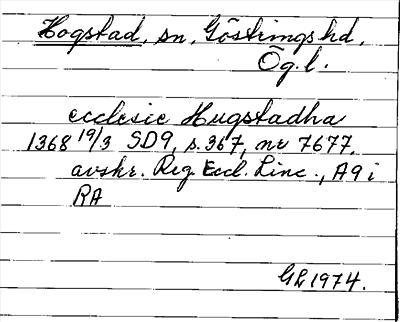 Hogstad, sn, Göstrings hd,
Ög.l.
ecclesie Hugstadha
1368 19/3 SD9, s. 367, nr 7677.
avskr. Reg. Eccl. Linc., A9 i
RA
GL 1974.